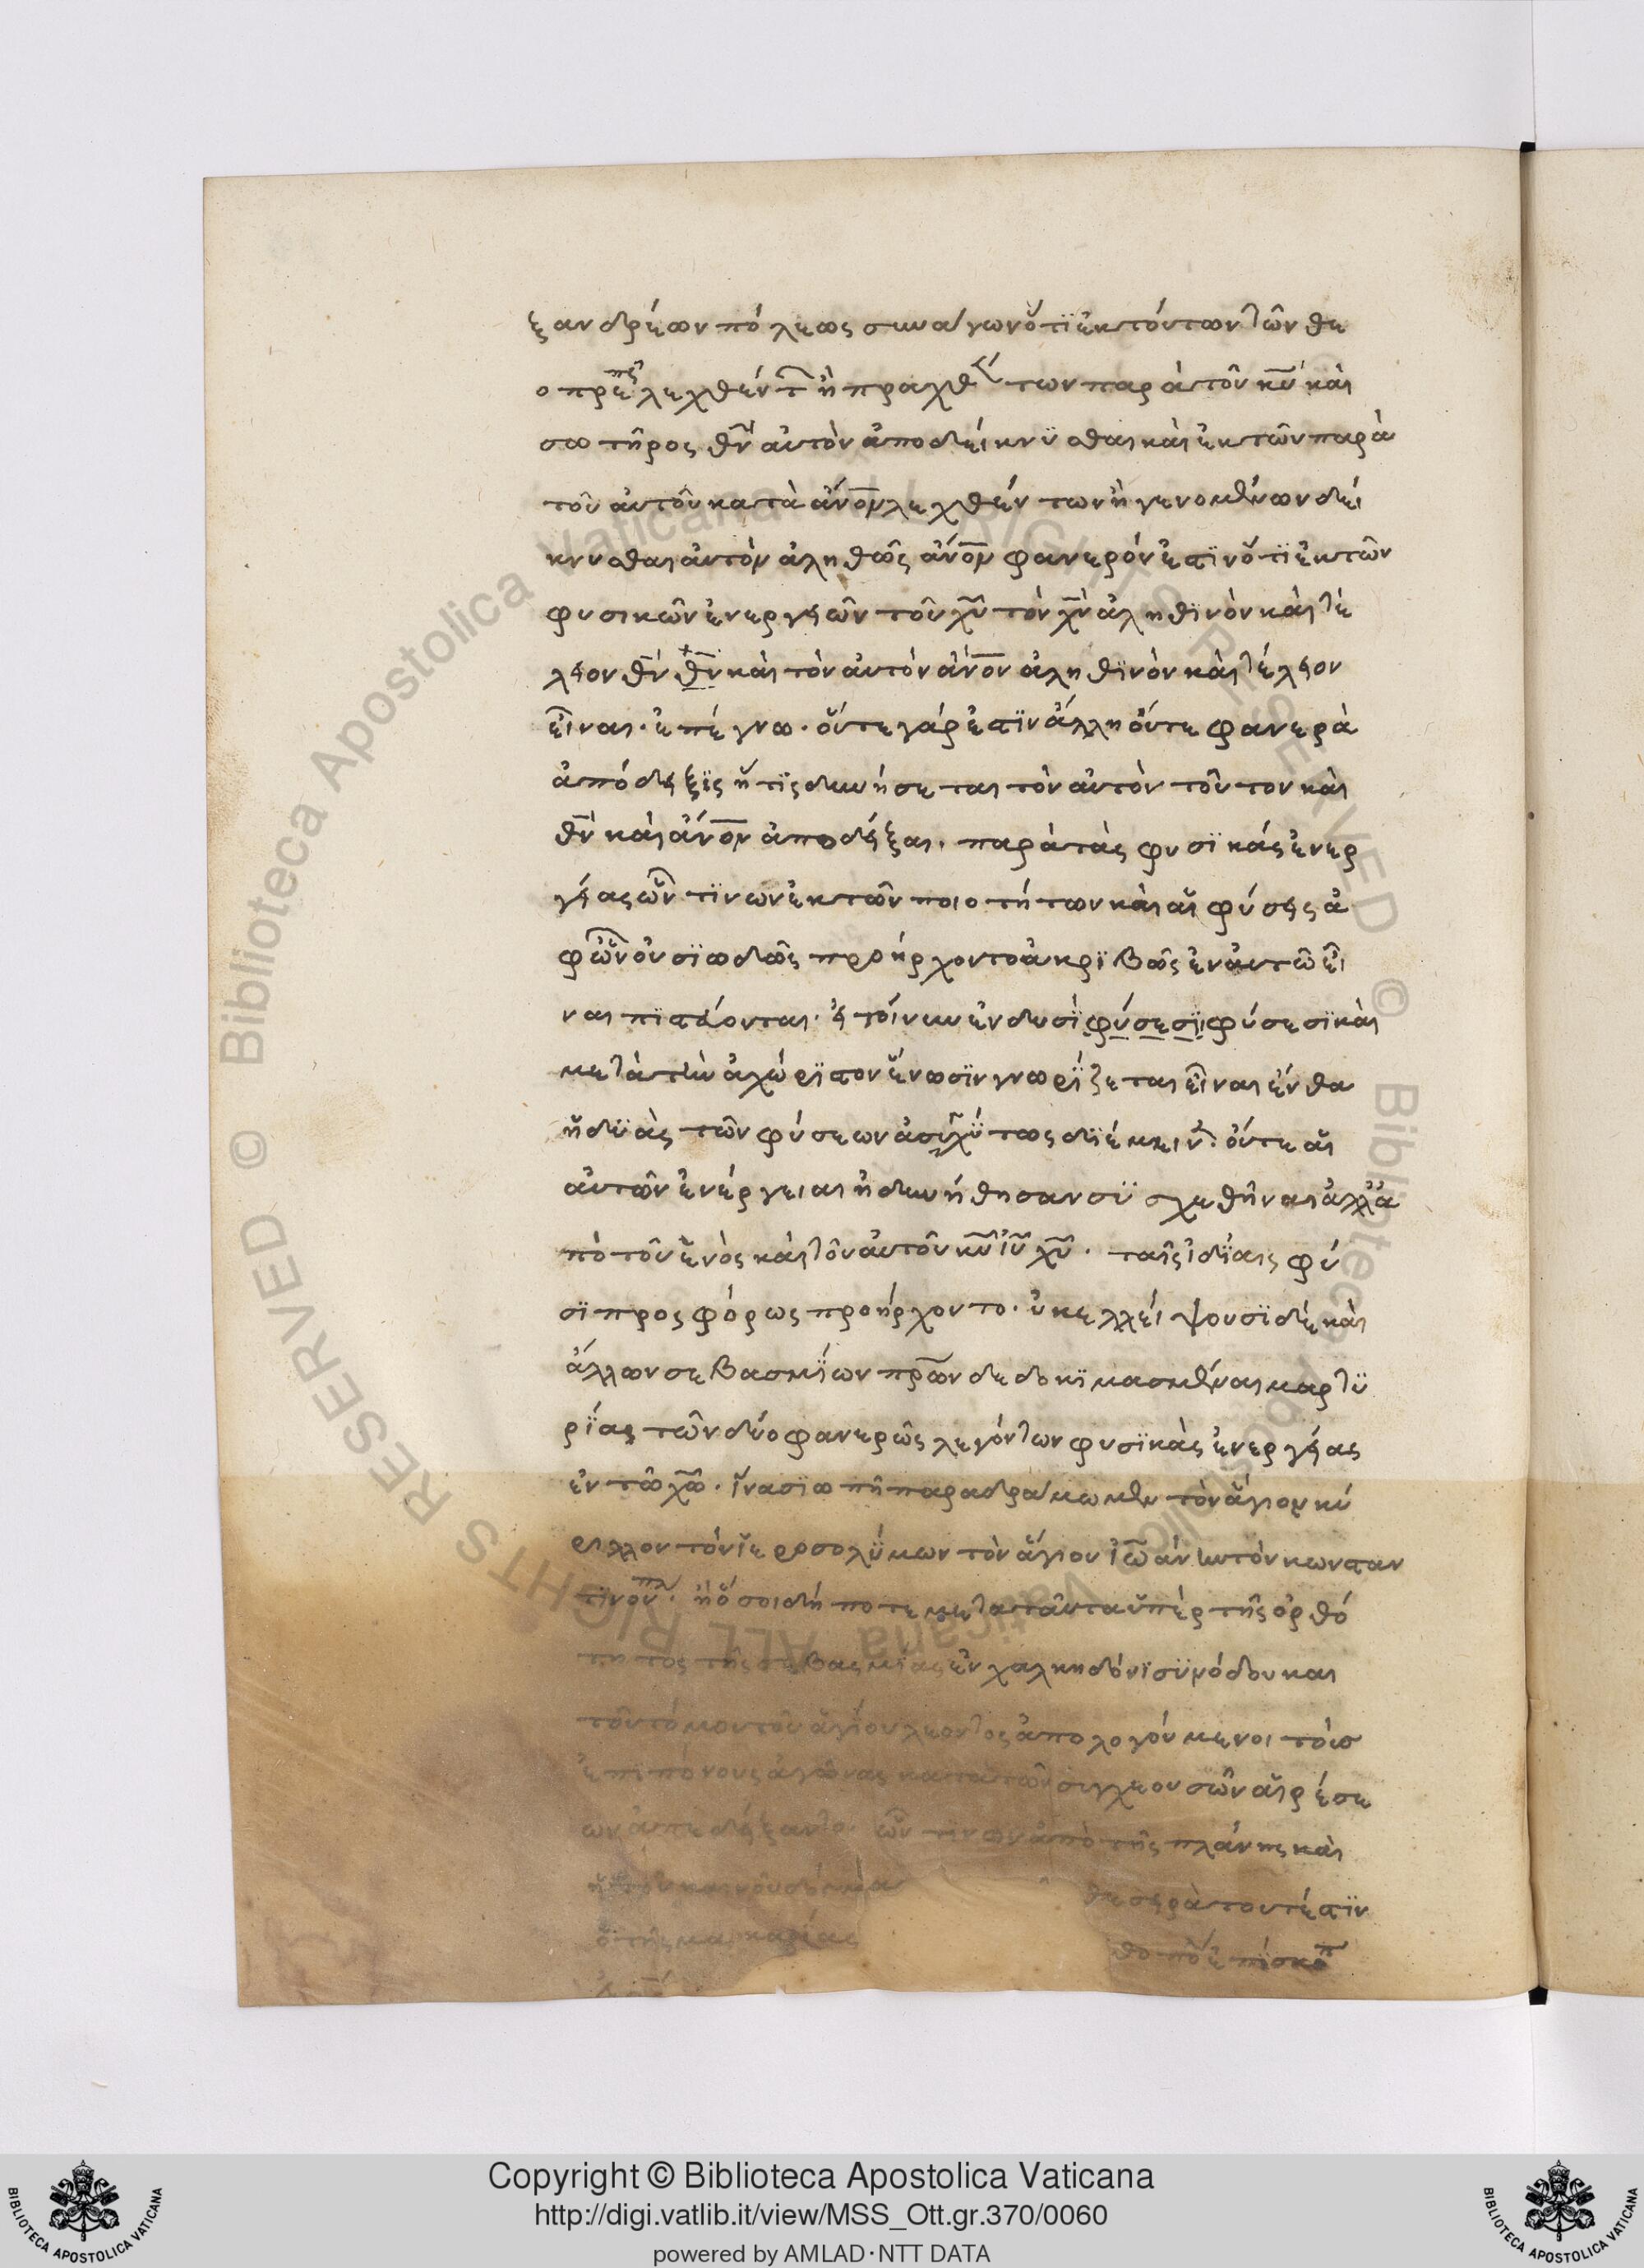 ξανδρέων πόλεως συναγων ὅτι ἐκ τούτων τῶν θε
οπρεπ λεχθέντ ἢ πραχθέντων παρὰ τοῦ κυ καὶ
σωτῆρος θν αὐτὸν ἀποδείκνϋσθαι καὶ ἐκ τῶν παρὰ
τοῦ αὐτοῦ κατὰ ἄνον λεχθέντων ἢ γενομένων δεί
κνυσθαι αὐτὸν ἀληθῶς ἄνον φανερόν ἐστϊν ὅτϊ ἐκ τῶν
φυσικῶν ἐνεργειῶν τοῦ χυ τὸν χν ἀληθϊνὸν καὶ τέ
λειον θν θν καὶ τὸν αὐτὸν ἄνον ἀληθϊνὸν καὶ τέλειον
εἶναι· ἐπέγνω· οὔτε γάρ ἐστϊν ἄλλη οὔτε φανερὰ
ἀπόδειξϊς ἥτϊς δυνήσεται τὸν αὐτὸν τοῦτον καὶ
θν καὶ ἄνον ἀποδείξαι· παρὰ τὰς φυσϊκάς ἐνερ
γείας ὧν τϊνων ἐκ τῶν ποιοτήτων καὶ αἱ φύσεις ἀ
φ ὧν οὐσϊωδῶς προήρχοντο ἀκρϊβῶς ἐν αὐτῶ εἶ
ναι πϊστέονται· εἰ τοίνυν ἐν δυσὶ φύσεσϊ φύσεσϊ καὶ
μετὰ τὴν ἀχώρϊστον ἕνωσϊν γνωρίζεται εἶναι ἔνθα
ἡ δϋὰς τῶν φύσεων ἀσυγχύτως δϊέμειν· οὔτε αἱ
αὐτῶν ἐνέργειαι ἠδυνήθησαν σϋσχεθῆναι ἀλλ ἀ
πὸ τοῦ ἑνὸς καὶ τοῦ αὐτοῦ κυ ιυ χυ· ταῖς ἰδίαις φύ
σϊ προςφόρως προήρχοντο· οὐκ ελλείψουσϊ δέ καὶ
ἄλλων σεβασμΐων πρων δεδοκϊμασμέναι μαρτϋ
ρίας τῶν δύο φανερῶς λεγόντων φυσϊκὰς ἐνεργείας
ἐν τῶ χω· ἵνα σϊωπῆ παραδράμωμεν τὸν ἅγιον κύ
ριλλον τὸν ἱεροσολύμων τὸν ἅγιον ἰωάννην τὸν κωνσταν
τϊνουπλ· ἢ ὅσοι δήποτε μετὰ ταῦτα ὑπὲρ τῆς ὀρθό
τητος τῆς σεβασμίας ἐν χαλκηδόνϊ σϋνόδου και
τοῦ τόμου τοῦ ἁγίου λεοντος ἀπολογούμενοι τοὺσ
ἐπιπόνους ἀγῶνας κατὰ τῶν σιγχεουσῶν αἱρέσε
ων ἀπεδείξαντο· ὧν τινων ἀπὸ τῆς πλάνης καὶ
θεσερὰ τουτέστϊν
ὁ τῆς μακαρίας ἐπίσκοπ